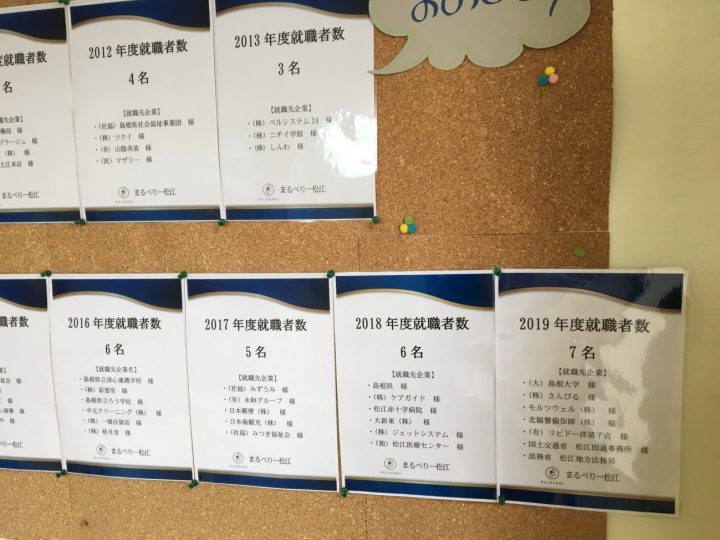 度就職者数
名
様
様
様
様
2012 年度就職者数
4 名
【就職先企業】
・（社福）島根県社会福祉事業団 様
・（株）ツクイ 様
・（有）山陰美装 様
・（医）マザリー 様
まるべりー松江
2013 年度就職者数
3 名
【就職先企業】
・（株）ベルシステム 24 様
・（株）ニチイ学館 様
・（株）しんわ 様
まるべりー松江
職者数
2016 年度就職者数
6 名
【就職先企業名】
・島根県立清心養護学校 様
・（株）彩雲堂 様
・島根県立ろう学校 様
・中元クリーニング（株） 様
・（株）一畑百貨店 様
・（株）桂月堂 様
まるべりー松江
2017 年度就職者数
5 名
【就職先企業】
・（社福）みずうみ 様
・（有）永和グループ 様
・日本郵便（株） 様
・日本海観光（株） 様
・（社福）みつき福祉会 様
まるべりー松江
2018 年度就職者数
6 名
【就職先企業】
・島根県 様
・（株）ケアガイド 様
・松江赤十字病院 様
・大新東（株） 様
・（株）ジェットシステム 様
・（独）松江医療センター 様
まるべりー松江
2019 年度就職者数
7 名
【就職先企業】
・（大）島根大学 様
・（株）さんびる 様
・モルツウェル（株） 様
・北陽警備保障（株） 様
・（有）リビドー洋菓子店 様
・国土交通省 松江国道事務所 様
・法務省 松江地方法務局
まるべりー松江